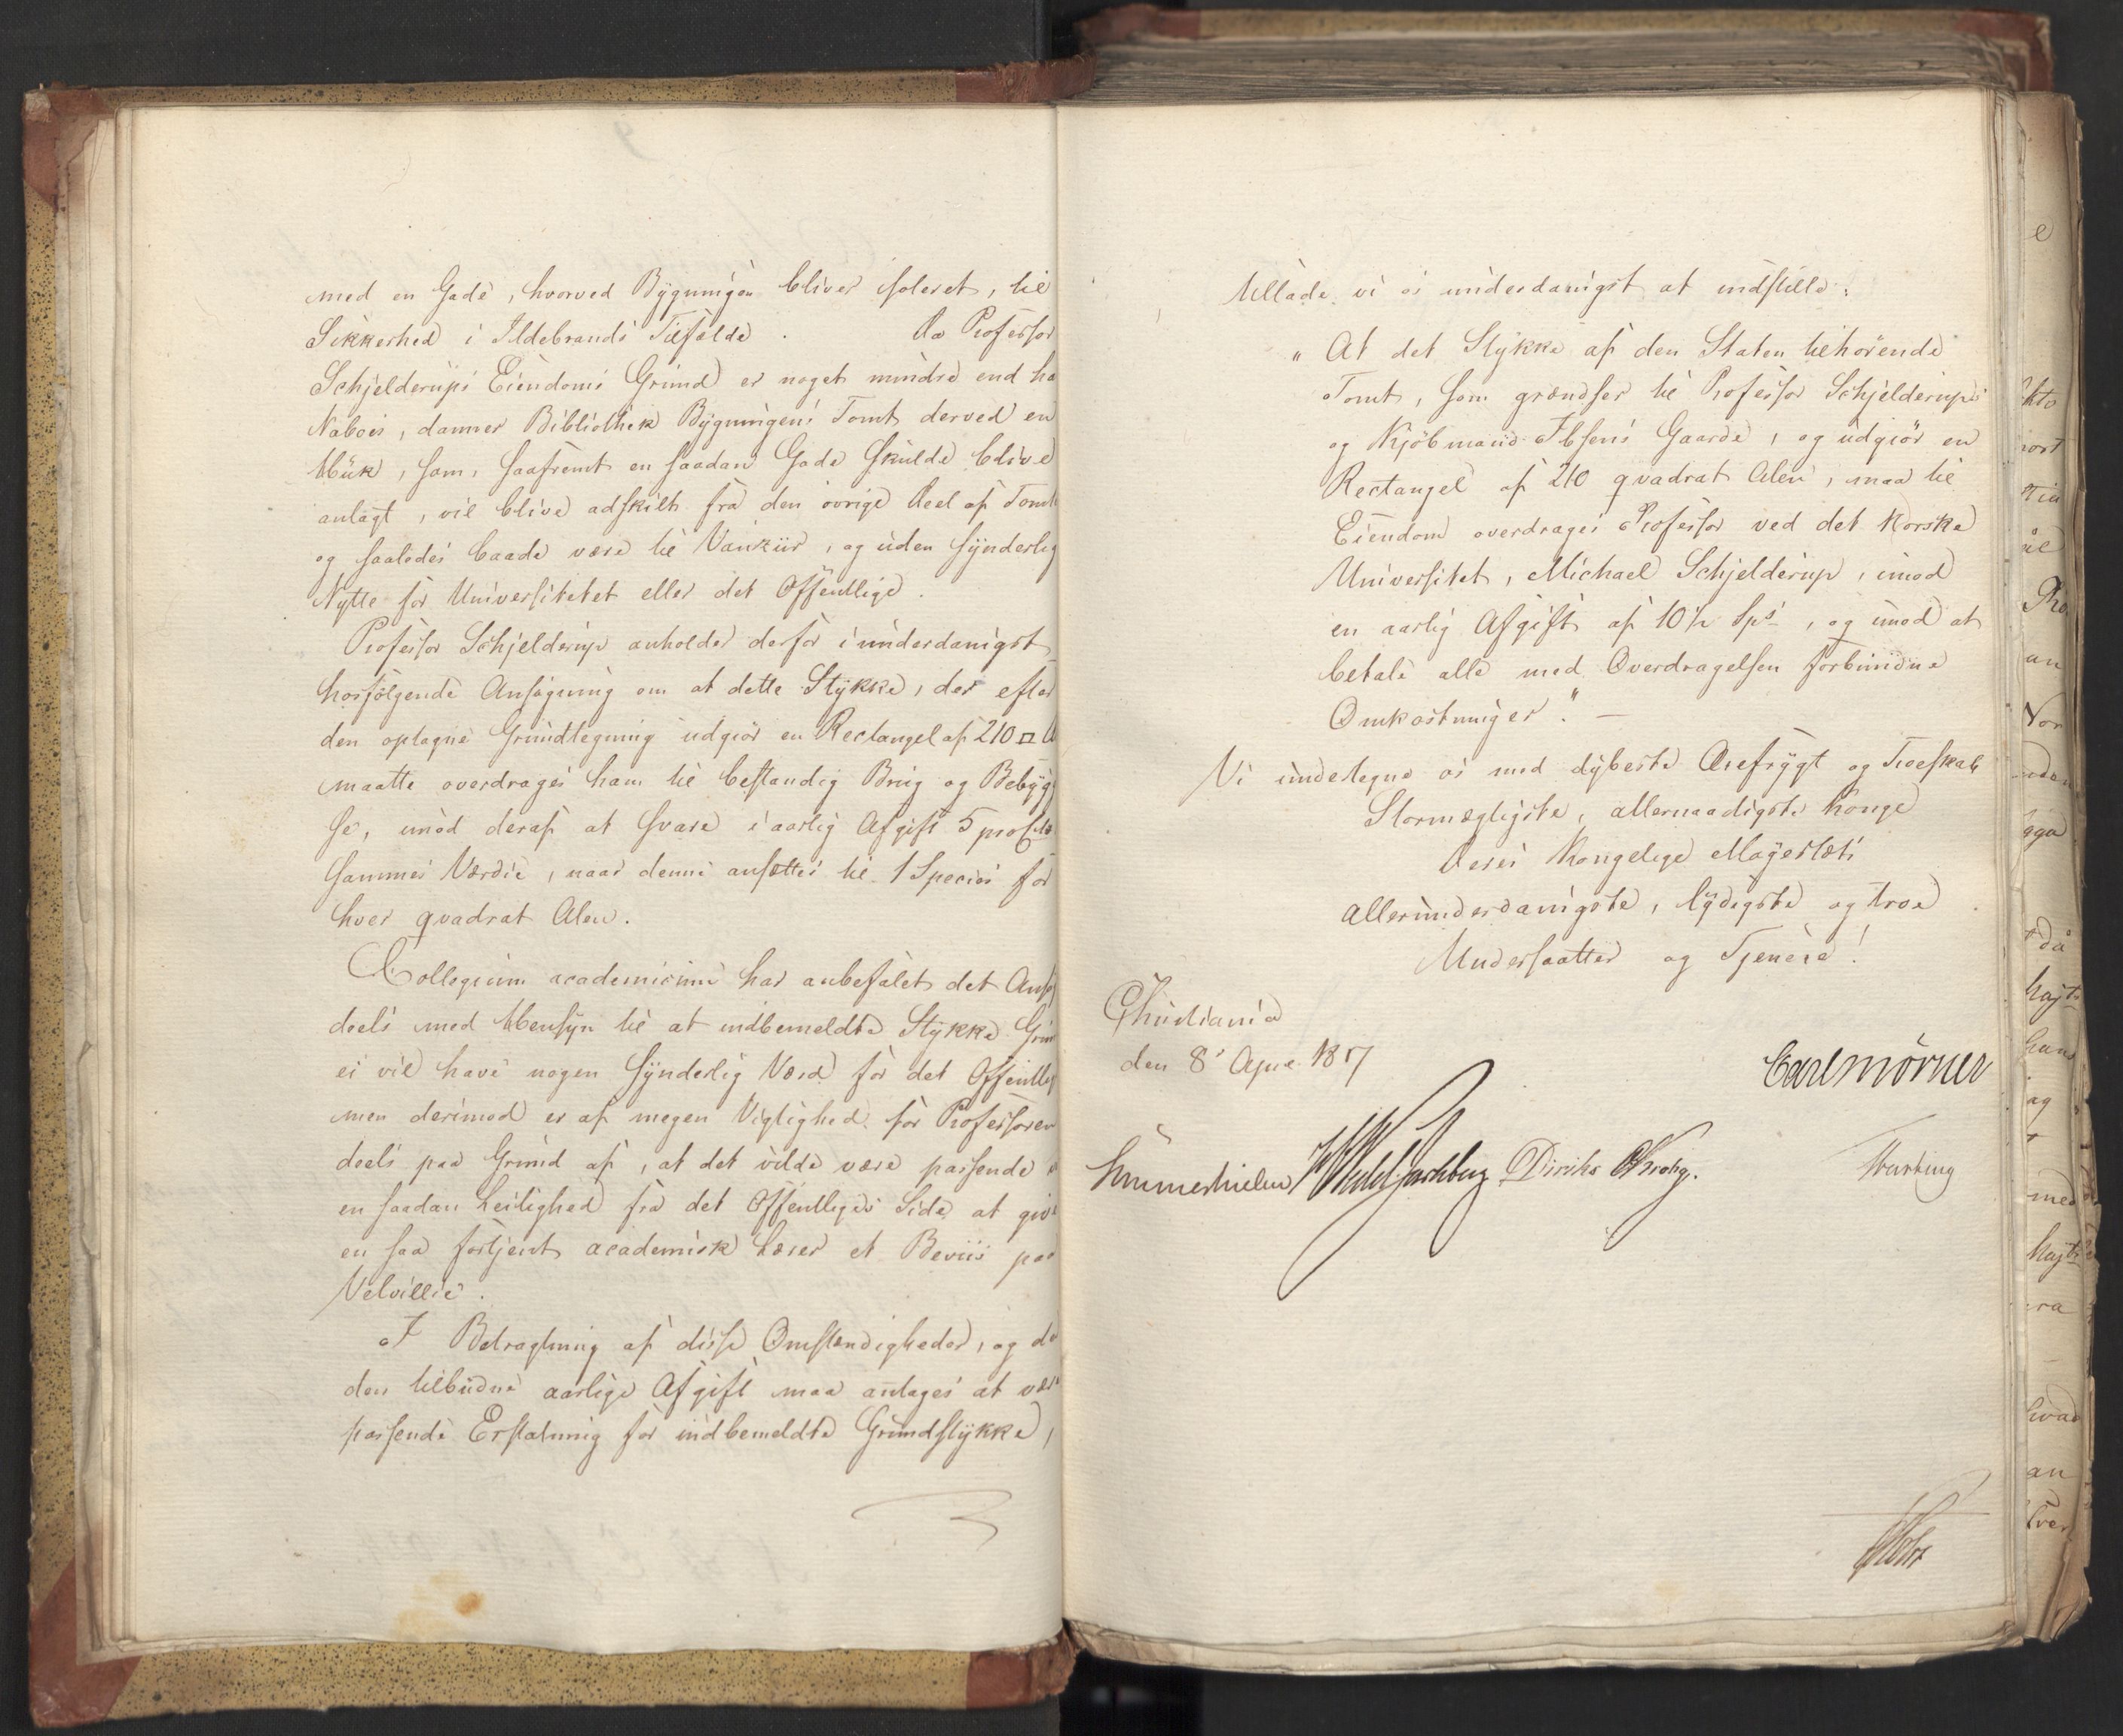 med en Gade, hvorved Bygningen bliver isoleret, til
Sikkerhed i Ildebrands Tilfælde. Da Professor
Schjelderups Eiendoms Grund er noget mindre end ha
Nabois, danner Bibliothek Bygningens Tomt derved en
, som, saafremt en saadan Gade skulde blive
anlagt, vil blive adskilt fra den øvrige Deel af Tomt
og saaledes baade være til Vanziir, og uden synderlig
Nytte for Universitetet eller det Offentlige.
Professor Schjelderup anholder derfor i underdanigst
hosfølgende Ansøgning om at dette Stykke, der efter
den optagne Grundtegning udgiør en Rectangel af 210 □ A
maatte overdrages ham til bestandig Brug og Bebyg
se, imod deraf at svare i aarlig Afgift 5 proCto
sammes Værdie, naar denne ansættes til 1 Species for
hver qvadrat Alen.
Collegium academicum har anbefalet det Ansø
deels med Hensyn til at indbemeldte Stykke Grun
ei vil have nogen synderlig Værd for det Offentlig
men derimod er af megen Vigtighed for Professoren
deels paa Grund af, at det vilde være passende
en saadan Leilighed fra det Offentliges Side at give
en saa fortjent academisk Lærer et Beviis paa
Velvillie.
I Betragtning af disse Omstændigheder, og da
den tilbudne aarlige Afgift maa antages at være
passende Erstatning for indbemeldte Grundstykke,
tillade vi os underdanigst at indstille:
"At det Stykke af den Staten tilhørende
Tomt, som grændser til Professor Schjelderups
og Kjøbmand Ibsens Gaarde, og udgiør en
Rectangel af 210 qvadrat Alen, maa til
Eiendom overdrages Professor ved det Norske
Universitet, Michael Schjelderup, imod
en aarlig Afgift af 10 1/2 Sps, og imod at
betale alle med Overdragelsen forbundne
Omkostninger." —
Vi undertegne os med dybeste Ærefrygt og Troeskab
Stormægtigste, allernaadigste Konge
Deres Kongelige Majestæts
allerunderdanigste, lydigste og troe
Undersaatter og Tjenere!
Christiania
den 8de April 1817
Carl Mörner
Sommerhielm Wedel Jarlsberg Diriks CKrohg. Thurling
Holst